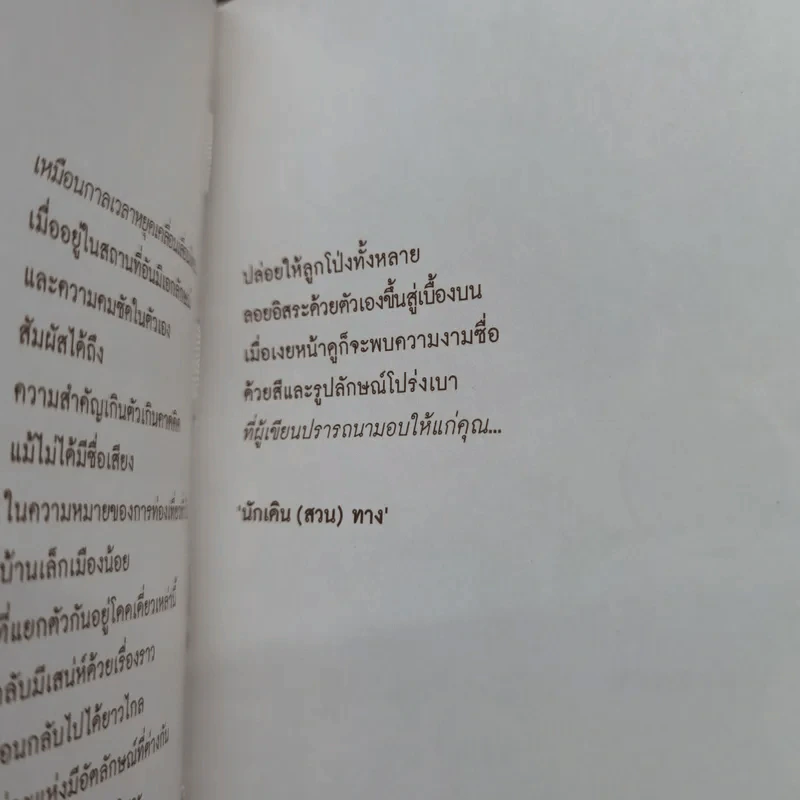 เหมือนกาลเวลาหยุดเคลื่อน
เมื่ออยู่ในสถานที่อันมีเอกลักษณ์
และความคมชัดในตัวเอง
สัมผัสได้ถึง
ความสำคัญเกินตัวเกินคาดคิด
แม้ไม่ได้มีชื่อเสียง
ในความหมายของการท่องเที่ยว
บ้านเล็กเมืองน้อย
ที่แยกตัวกันอยู่โดดเดี่ยวเหล่านี้
กลับมีเสน่ห์ด้วยเรื่องราว
ย้อนกลับไปได้ยาวไกล
แห่งมีอัตลักษณ์ที่ต่างกัน
ปล่อยให้ลูกโป่งทั้งหลาย
ลอยอิสระด้วยตัวเองขึ้นสู่เบื้องบน
เมื่อเงยหน้าดูก็จะพบความงามซื่อ
ด้วยสีและรูปลักษณ์โปร่งเบา
ที่ผู้เขียนปรารถนามอบให้แก่คุณ...
'นักเดิน (สวน) ทาง'